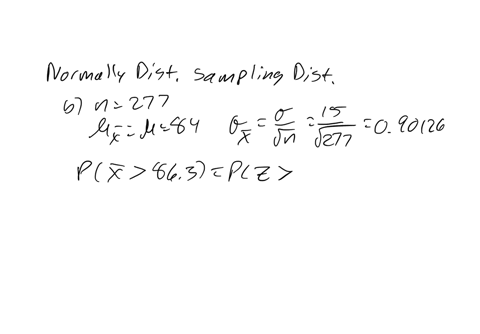 Normally Dist. Sampling Dist.
b) n = 277
μ_x̄ = μ = 84 σ_x̄ = σ/√n = 15/√277 = 0.90126
P(x̄ > 86.3) = P(z >